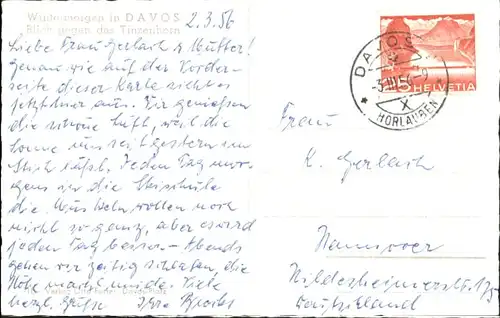 Wintermorgen in DAVOS
Blick gegen das Tinzenhorn
2.3.56
Liebe Frau Gerlach & Mutter!
Genau wie auf der Vorder-
seite dieser Karte sieht es
jetzt hier aus. Wir genießen
die schöne Luft, weil die
Sonne uns seit gestern im
Stich läßt. Jeden Tag mor-
gens in die Skischule
die wollen noch
nicht so ganz, aber es wird
jeden Tag besser. Abends
gehen wir zeitig schlafen, die
Höhe macht müde. Viele
herzl. Grüße Ihre
Verlag Davos-Platz
DAVOS
-3.III.56-9
X
HORLAUBEN
5 HELVETIA
Frau
K. Gerlach
Hannover
Hildesheimerstr. 175
Deutschland